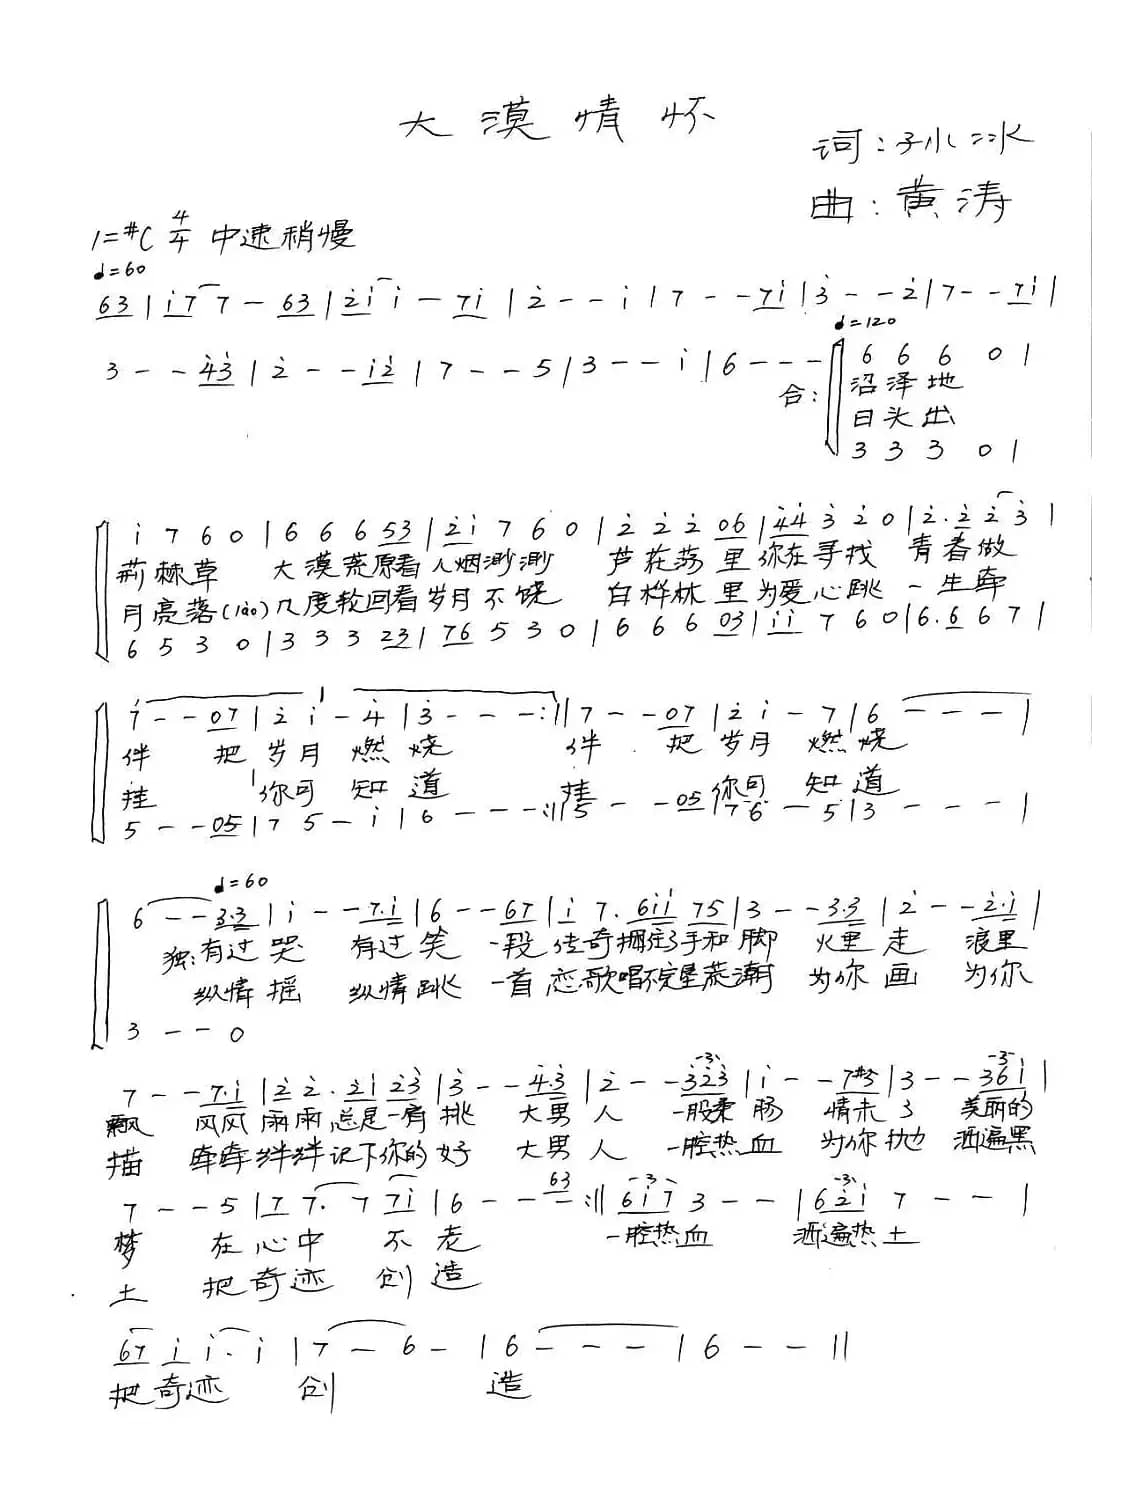 大漠情怀
词：孙小冰
曲：黄涛
1=#C 4/4 中速稍慢
♩=60
63 | i̇ 7 7 — 63 | 2̇ i̇ i̇ — 7 i̇ | 2̇ — — i̇ | 7 — — 7 i̇ | 3̇ — — 2̇ | 7 — — 7 i̇ |
♩=120
3 — — 4̇3̇ | 2̇ — — i̇2̇ | 7 — — 5 | 3 — — i̇ | 6 — — — 6 6 6 0 |
合： 沼泽地
日头出
3 3 3 0 |
i̇ 7 6 0 | 6 6 6 53 | 2̇i̇ 7 6 0 | 2̇ 2̇ 2̇ 06 | 4̇4̇ 3̇ 2̇ 0 | 2̇. 2̇ 2̇ 3̇ |
荊棘草 大漠荒原看人烟渺渺 芦花荡里你在寻找 青春做
月亮落(lào)几度轮回看岁月不饶 白桦林里为爱心跳 一生牵
6 5 3 0 | 3 3 3 23 | 76 5 3 0 | 6 6 6 03 | i̇i̇ 7 6 0 | 6. 6 6 7 |
7 — — 07 | 2̇ i̇ — 4̇ | 3̇ — — — :|| 7 — — 07 | 2̇ i̇ — 7 | 6 — — — |
伴 把岁月燃烧 伴 把岁月燃烧
挂 你可知道 挂 你可知道
5 — — 05 | 7 5 — i̇ | 6 — — — :|| 5 — — 05 | 7 6 — 5 | 3 — — — |
♩=60
6 — — 3.3 | i̇ — — 7.i̇ | 6 — — 67 | i̇ 7. 6i̇i̇ 75 | 3 — — 3.3 | 2̇ — — 2̇.i̇ |
独：有过哭 有过笑 一段传奇拥住了手和脚 火里走 浪里
纵情摇 纵情跳 一首恋歌唱不完星荒潮 为你画 为你
3 — — 0
7 — — 7.i̇ | 2̇ 2̇. 2̇i̇ 2̇3̇ | 3̇ — — 4̇.3̇ | 2̇ — — 3̇2̇3̇ | i̇ — — 7#5 | 3 — — 36i̇ |
飘 风风雨雨总是一肩挑 大男人 一股柔肠 情未了 美丽的
描 牵牵绊绊记下你的好 大男人 一腔热血 为你抛 洒遍黑
7 — — 5 | 7 7. 7 7i̇ | 6 — — 63 :|| 6i̇7 3 — — | 62̇i̇ 7 — — |
梦 在心中不老 一腔热血 洒遍热土
土 把奇迹创造
67 i̇ i̇. i̇ | 7 — 6 — | 6 — — — | 6 — — ||
把奇迹 创 造